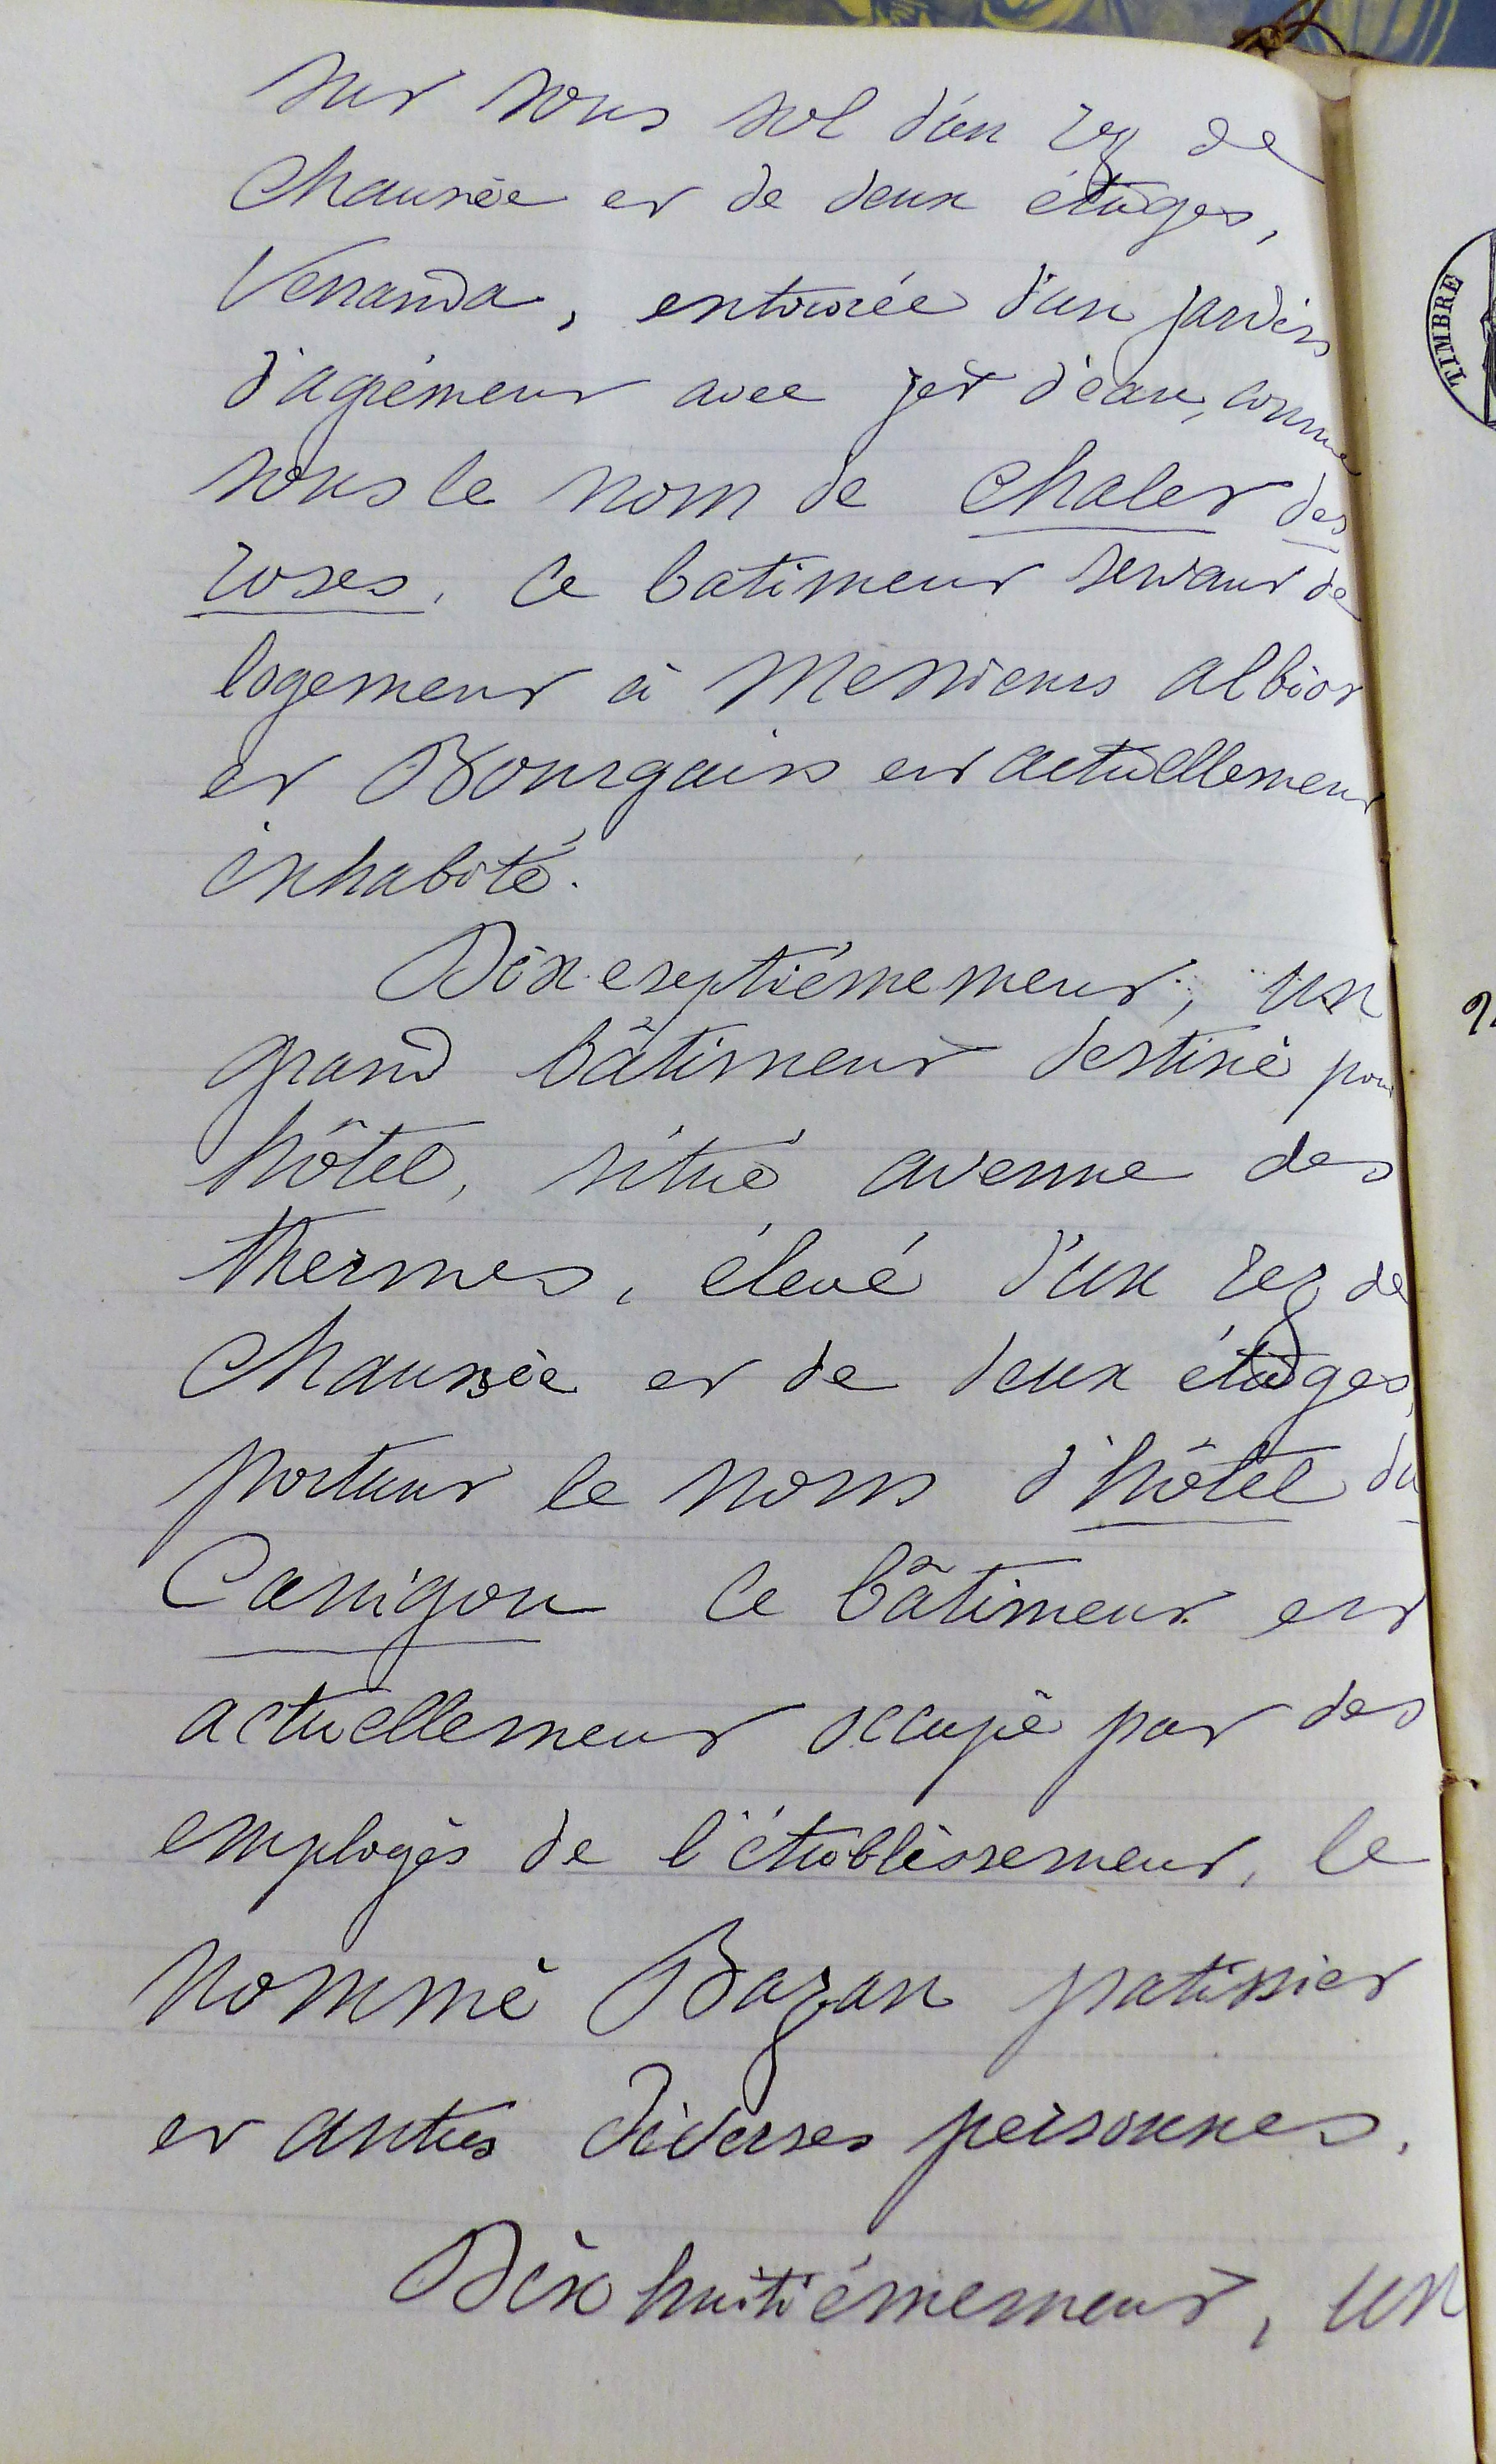 sur sous sol d'un rez de
chaussée et de deux étages,
Verranda, entourée d'un jardin
d'agrément avec jet d'eau, connue
sous le nom de chalet des
roses. Ce batiment servant de
logement à Messieurs Albiot
et Bourgain est actuellement
inhabité.
Dix septièmement, un
grand bâtiment destiné pour
hôtel, situé avenue des
thermes, élevé d'un rez de
chaussée et de deux étages,
portant le nom d'hôtel du
Canigou Ce bâtiment est
actuellement occupé par des
employés de l'établissement, le
nommé Bazan patissier
et autres diverses personnes.
Dix huitièmement, un
TIMBRE